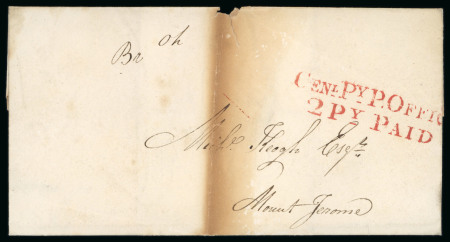 Br oh
CENL PY P. OFFIC
2 PY PAID
Keogh Esqr.
Mount Jerome